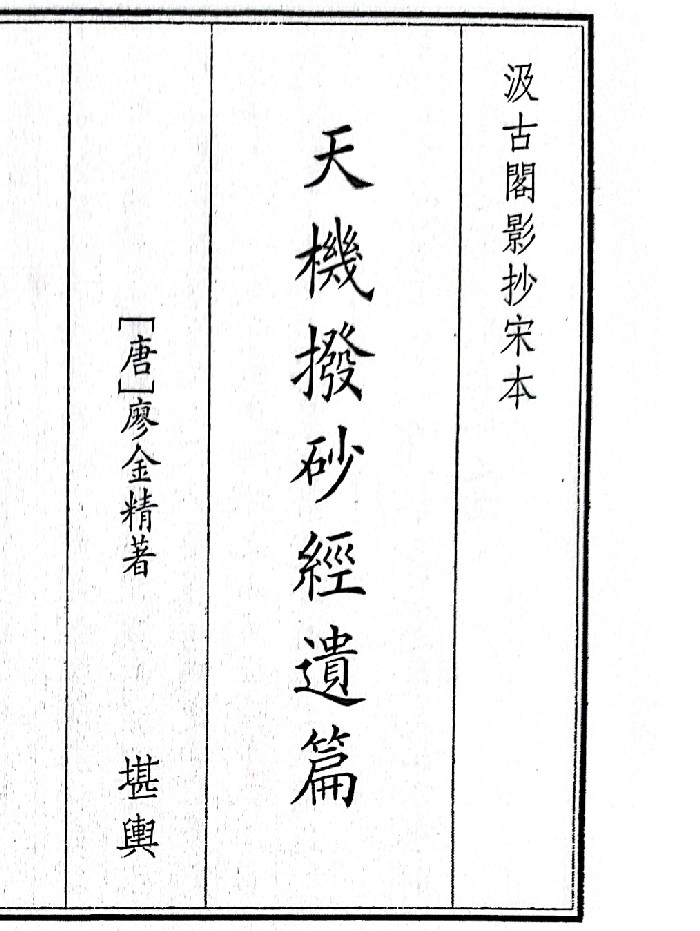 汲古閣影抄宋本
天機撥砂經遺篇
[唐]廖金精著 堪輿